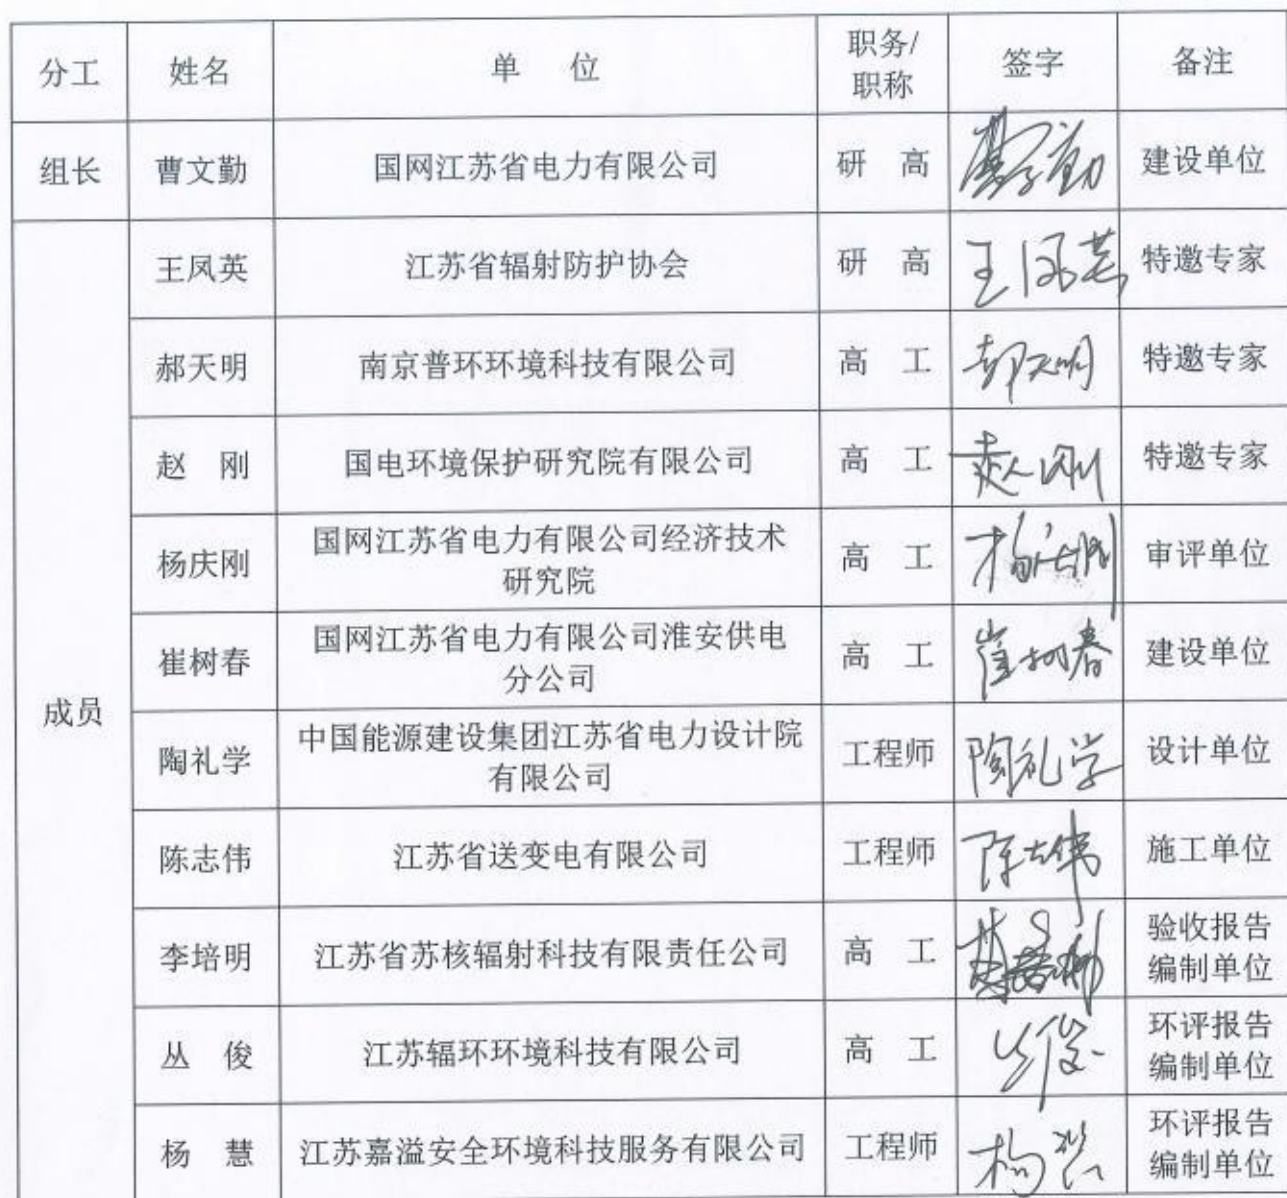 分工 姓名 单 位 职务/职称 签字 备注
组长 曹文勤 国网江苏省电力有限公司 研 高 曹文勤 建设单位
成员
王凤英 江苏省辐射防护协会 研 高 王凤英 特邀专家
郝天明 南京普环环境科技有限公司 高 工 郝天明 特邀专家
赵 刚 国电环境保护研究院有限公司 高 工 赵刚 特邀专家
杨庆刚 国网江苏省电力有限公司经济技术研究院 高 工 杨庆刚 审评单位
崔树春 国网江苏省电力有限公司淮安供电分公司 高 工 崔树春 建设单位
陶礼学 中国能源建设集团江苏省电力设计院有限公司 工程师 陶礼学 设计单位
陈志伟 江苏省送变电有限公司 工程师 陈志伟 施工单位
李培明 江苏省苏核辐射科技有限责任公司 高 工 验收报告编制单位
丛 俊 江苏辐环环境科技有限公司 高 工 丛俊 环评报告编制单位
杨 慧 江苏嘉溢安全环境科技服务有限公司 工程师 杨慧 环评报告编制单位